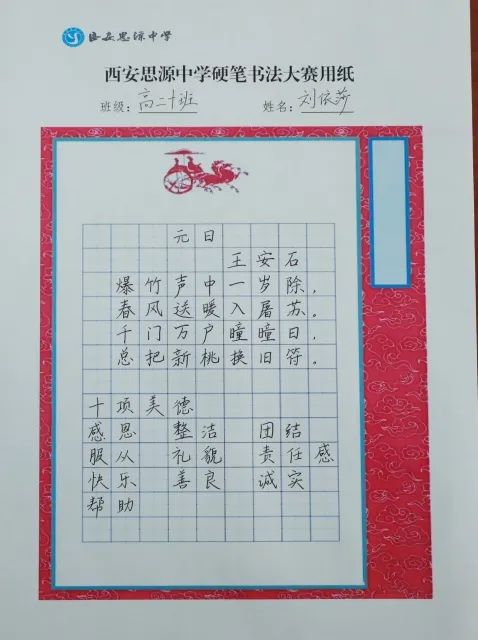 西安思源中学
西安思源中学硬笔书法大赛用纸
班级：高二十班 姓名：刘依莎
元日
王安石
爆竹声中一岁除，
春风送暖入屠苏。
千门万户曈曈日，
总把新桃换旧符。
十项美德
感恩 整洁 团结
服从 礼貌 责任感
快乐 善良 诚实
帮助